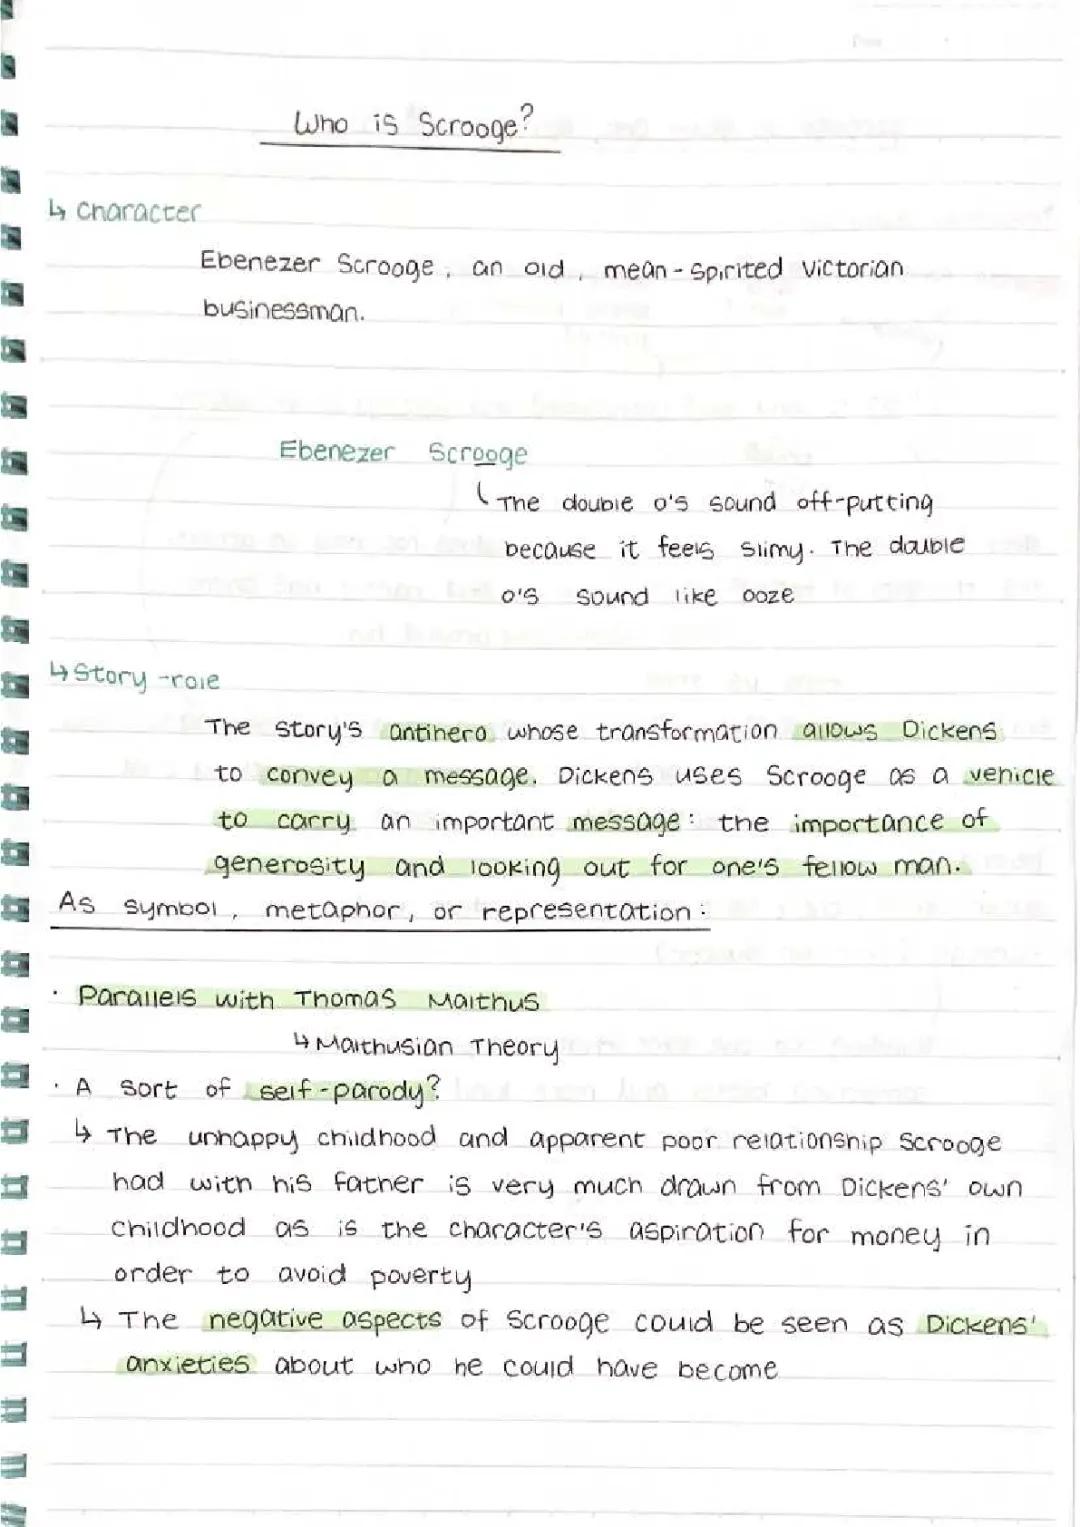 Who is Scrooge?
↳ Character
Ebenezer Scrooge, an old, mean-spirited Victorian
businessman.
Ebenezer Scrooge
The double o's sound off-putting
because it feels slimy. The double
o's sound like ooze
↳ Story-role
The story's antihero whose transformation allows Dickens
to convey a message. Dickens uses Scrooge as a vehicle
to carry an important message: the importance of
generosity and looking out for one's fellow man.
As symbol, metaphor, or representation:
· Parallels with Thomas Malthus
↳ Malthusian Theory
· A sort of self-parody?
↳ The unhappy childhood and apparent poor relationship Scrooge
had with his father is very much drawn from Dickens' own
childhood as is the character's aspiration for money in
order to avoid poverty
↳ The negative aspects of Scrooge could be seen as Dickens'
anxieties about who he could have become